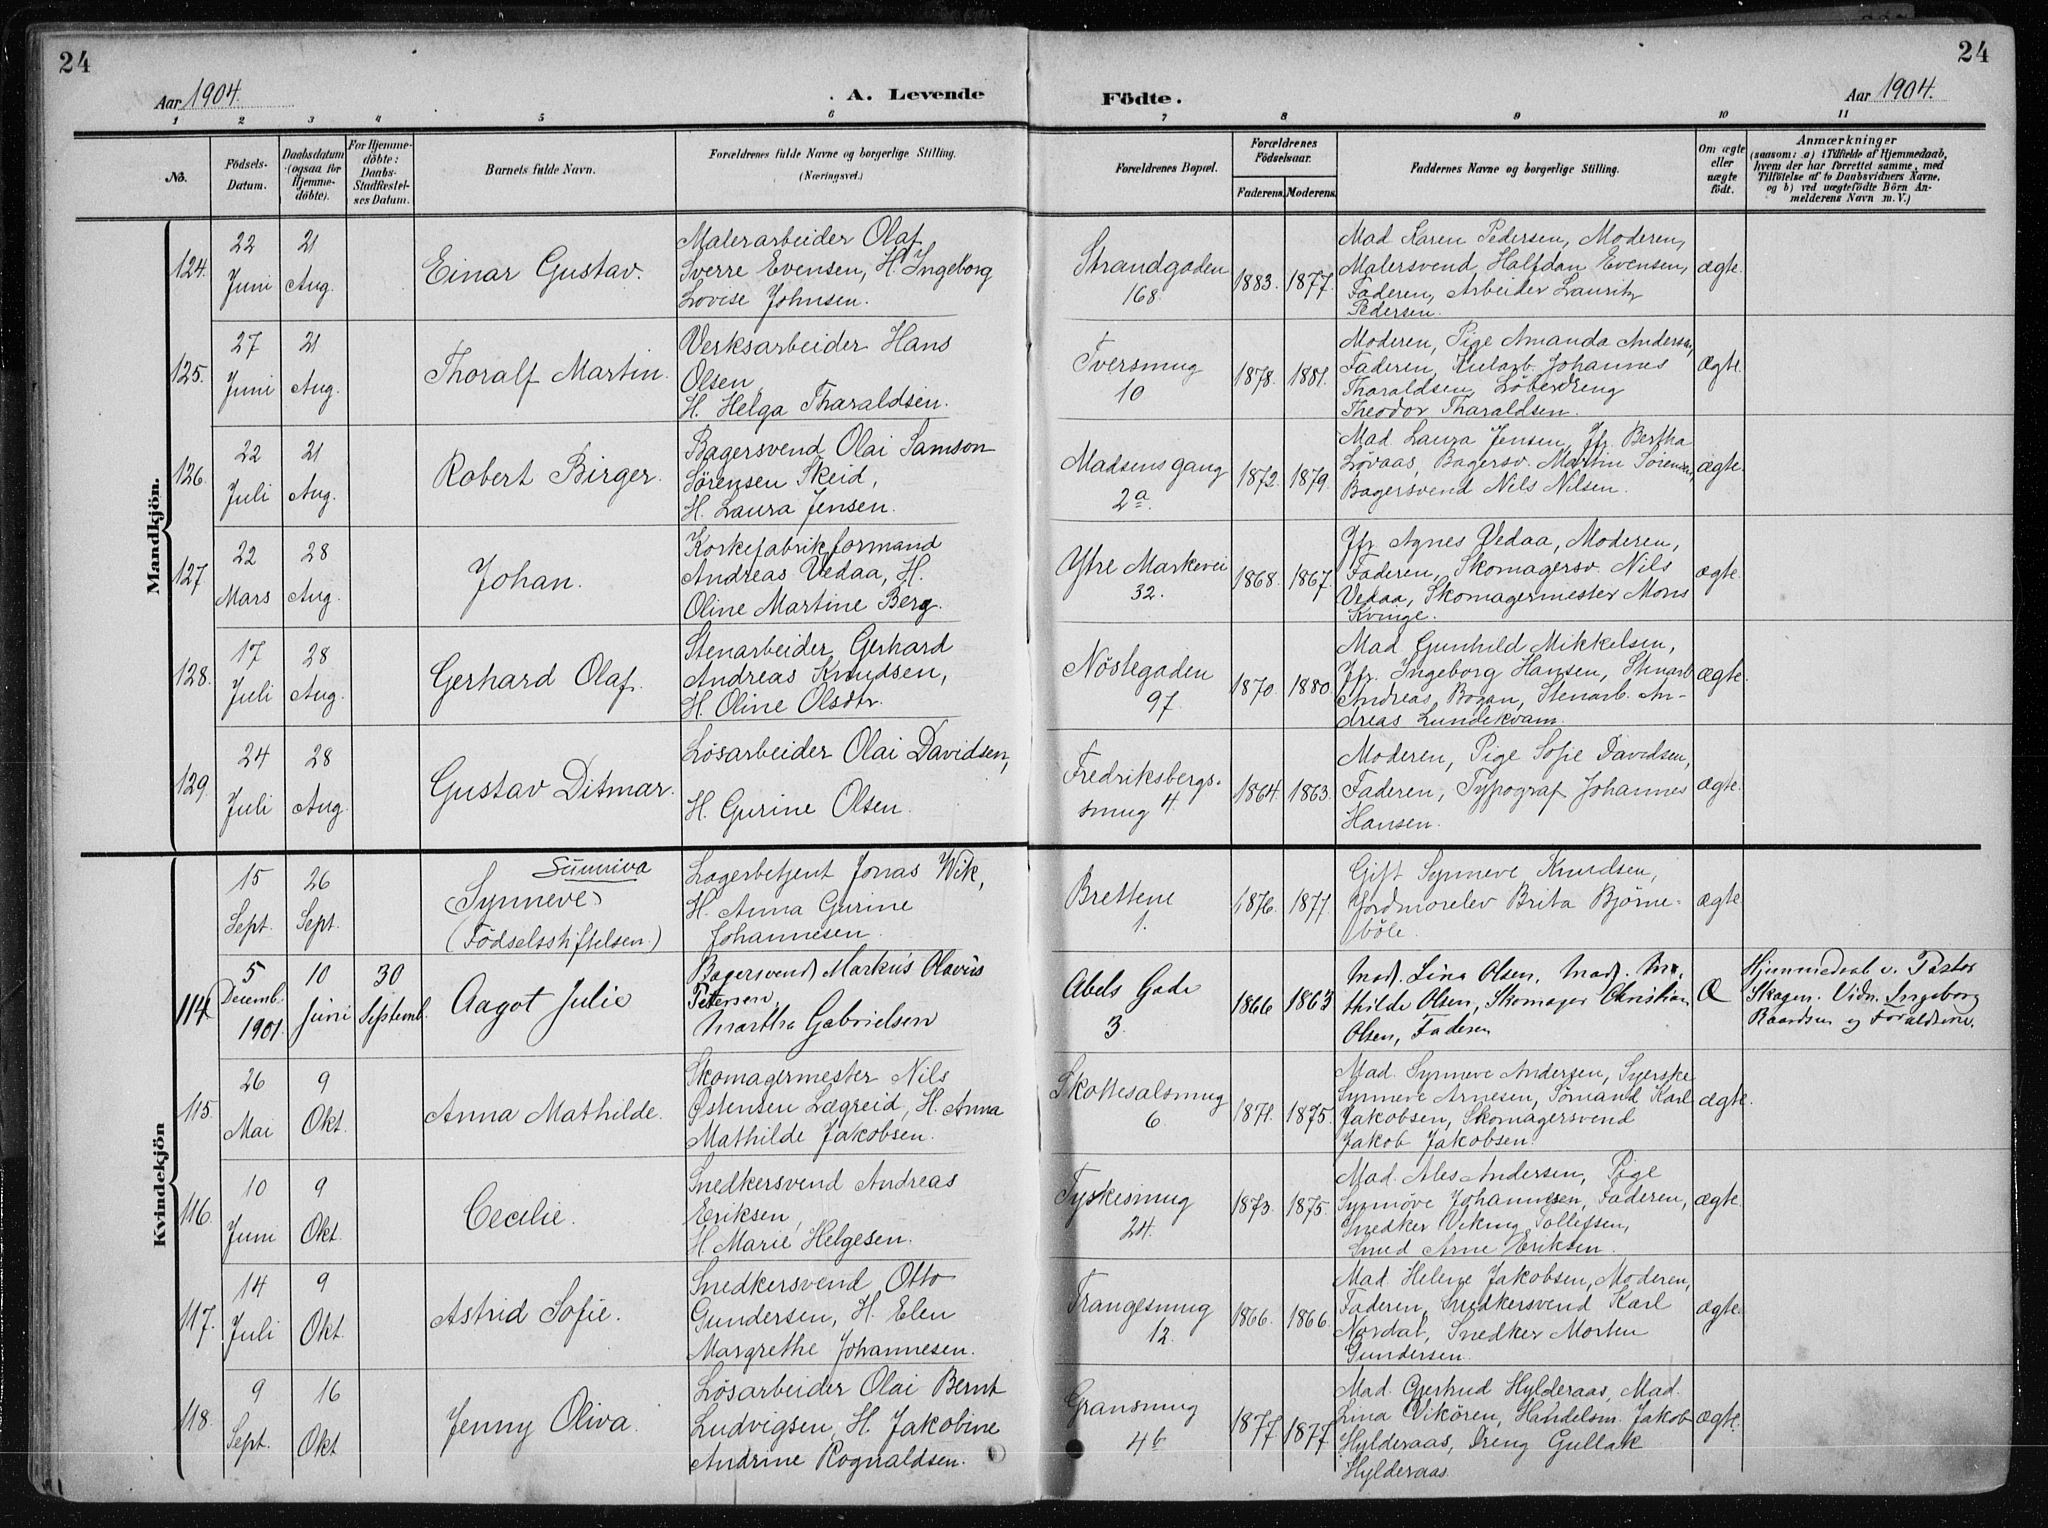 24
24
Aar 1904.
A. Levende
Födte.
Aar 1904.
1 2 3 4 5 6 7 8 9 10 11
No.
Födsels-
Datum.
Daabsdatum
(ogsaa for
Hjemme-
döbte).
For Hjemme-
döbte:
Daabs-
Stadfæstel-
ses Datum.
Barnets fulde Navn.
Forældrenes fulde Navne og borgerlige Stilling.
(Næringsvei.)
Forældrenes Bopæl.
Forældrenes
Födselsaar.
Faderens. Moderens.
Faddernes Navne og borgerlige Stilling.
Om ægte
eller
uægte
födt.
Anmærkninger
(saasom: a) i Tilfælde af Hjemmedaab,
hvem der har forrettet samme, med
Tilföielse af to Daabsvidners Navne,
og b) ved uægtefödte Börn An-
melderens Navn m. V.)
Mandkjön.
124.
22
Juni
21
Aug.
Einar Gustav.
Malerarbeider Olaf
Sverre Evensen, H. Ingeborg
Lovise Johnsen.
Strandgaden
168.
1883. 1877.
Mad Karen Pedersen, Moderen,
Malersvend Halfdan Evensen,
Faderen, Arbeider Lauritz
Pedersen.
ægte.
125.
27
Juni
21
Aug.
Thoralf Martin.
Verksarbeider Hans
Olsen,
H. Helga Tharaldsen.
Tversmug
10
1878. 1881.
Moderen, Pige Amanda Andersen,
Faderen, Kularb. Johannes
Tharaldsen, Løberdreng
Theodor Tharaldsen.
ægte.
126.
22
Juli
21
Aug.
Robert Birger.
Bagersvend Olai Samson
Sørensen Skeid,
H. Laura Jensen.
Madsens gang
2a.
1872. 1879.
Mad Laura Jensen, Jfr. Bertha
Løvaas, Bagersv. Martin Sørensen,
Bagersvend Nils Nilsen.
ægte.
127
22
Mars
28
Aug.
Johan.
Korkefabrikformand
Andreas Vedaa, H.
Oline Martine Berg.
Ytre Markevei
32.
1868. 1867.
Jfr. Agnes Vedaa, Moderen,
Faderen, Skomagersv. Nils
Vedaa, Skomagermester Mons
Kvinge.
ægte.
128.
17
Juli
28
Aug.
Gerhard Olaf.
Stenarbeider Gerhard
Andreas Knudsen,
H. Oline Olsdtr.
Nøstegaden
97.
1870. 1880.
Mad Gunhild Mikkelsen,
Jfr. Ingeborg Hansen, Stenarb
Andreas Bogan, Stenarb. An-
dreas Lundekvam.
ægte.
129.
24
Juli
28
Aug.
Gustav Ditmar.
Løsarbeider Olai Davidsen,
H. Gurine Olsen.
Fredriksbergs-
smug 4
1864. 1863.
Moderen, Pige Sofie Davidsen,
Faderen, Typograf Johannes
Hansen.
ægte.
Kvindekjön
15
Sept.
26
Sept.
Sunniva
(Synneve)
(Fødselsstiftelsen.)
Lagerbetjent Jonas Wik,
H. Anna Gurine
Johannesen.
Brettene
1.
1876. 1877.
Gift Synneve Knudsen,
Jordmorelev Brita Bjørne-
bøle.
ægte
114
5
Decemb.
1901.
10
Juni
30
Septemb.
Aagot Julie
Bagersvend Markus Olavus
Petersen
Martha Gabrielsen
Abels Gade
3.
1866 1863
Mad. Lina Olsen, Mad. Ma-
thilde Olsen, Skomager Christian
Olsen, Faderen
Æ
Hjemmedaab v. Pastor
Skagen. Vidn. Ingeborg
Baardsen og Forældrene.
115.
26
Mai
9
Okt.
Anna Mathilde.
Skomagermester Nils
Østensen Lægreid, H. Anna
Mathilde Jakobsen.
Skottesalsmug
6.
1871. 1875.
Mad. Synneve Andersen, Syerske
Synneve Arnesen, Sømand Karl
Jakobsen, Skomagersvend
Jakob Jakobsen.
ægte.
116.
10
Juni
9
Okt.
Cecilie.
Snedkersvend Andreas
Eriksen,
H. Marie Helgesen.
Tyskesmug
24.
1873. 1875.
Mad. Ales Andersen, Pige
Synnøve Johannesen, Faderen,
Snedker Viking Tollefsen,
Smed Arne Eriksen.
ægte.
117.
14
Juli
9
Okt.
Astrid Sofie.
Snedkersvend Otto
Gundersen, H. Elen
Margrethe Johannesen.
Trangesmug
12.
1866. 1866.
Mad. Helene Jakobsen, Moderen,
Faderen, Snedkersvend Karl
Nordal, Snedker Morten
Gundersen.
ægte.
118.
9
Sept.
16
Okt
Jenny Oliva.
Løsarbeider Olai Bernt
Ludvigsen, H. Jakobine
Andrine Rognaldsen.
Gransmug
4b
1877. 1877.
Mad. Gjertrud Hylderaas, Mad.
Lina Vikören, Handelsm. Jakob
Hylderaas, Dreng Gullak
Hylderaas.
ægte.